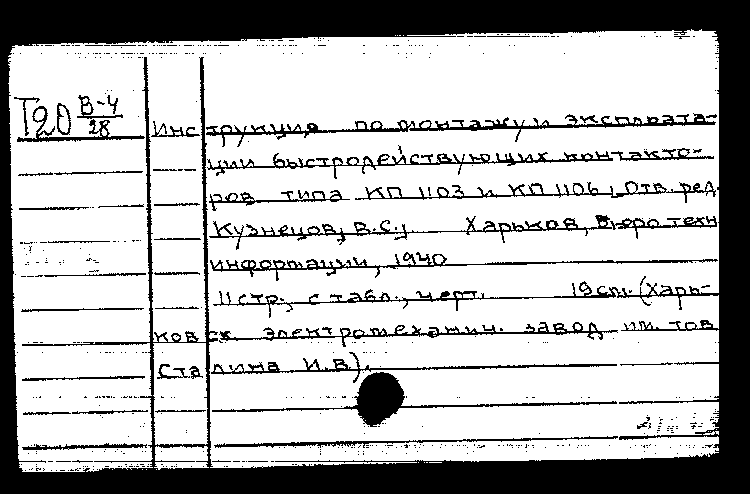 Т20 В-4/28
Инструкция по монтажу и эксплоата-
ции быстродействующих контакто-
ров типа КП 1103 и КП 1106 [Отв. ред.
Кузнецов, В.С.] Харьков, Бюро техн
информации, 1940
11 стр., с табл., черт. 19 см. (Харь-
ковск. электромеханич. завод им. тов
Сталина И.В).